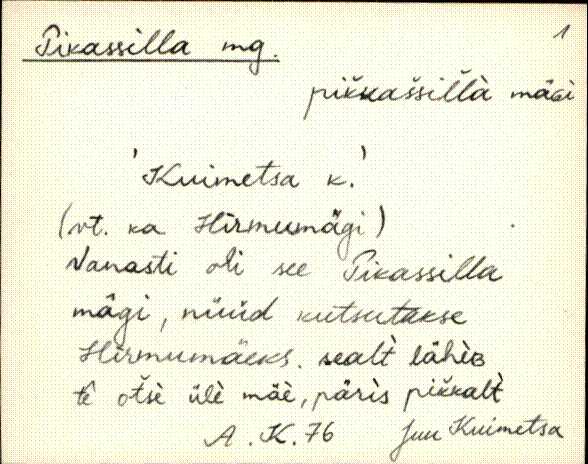 1
Pikassilla mg.
pikkašsillà mäGì
'Kuimetsa k.'
(vt. ka Hirmumägi)
Vanasti oli see Pikassilla
mägi, nüüd kutsutakse
Hirmumäeks. sealt̀ läheB
tê otsè ülè mäè, päris pikkalt̀
A. K. 76 Juu Kuimetsa